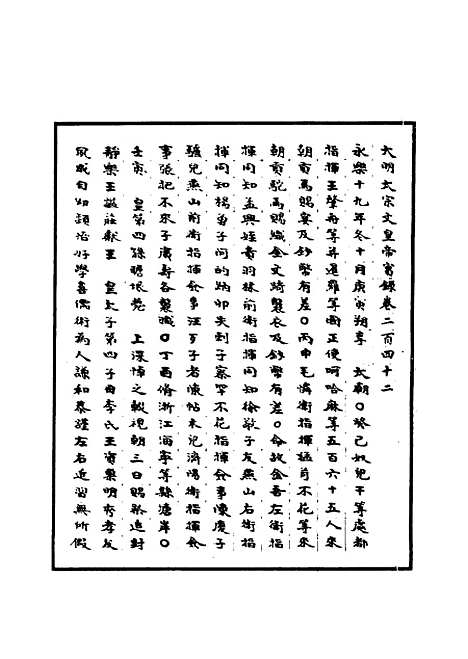 大明太宗文皇帝實錄卷二百四十二
永樂十九年冬十月庚寅朔享　太廟○癸巳奴兒干等處都
指揮王肇舟等并暹羅等國正使坤哈麻等五百六十五人來
朝貢馬賜宴及鈔幣有差○丙申毛憐衛指揮猛哥不花等來
朝貢駝馬賜織金文綺襲衣及鈔幣有差○命故金吾左衛指
揮同知孟興姪貴羽林前衛指揮同知徐敬子友燕山右衛指
揮同知楊留子同的納卯失到子察罕不花指揮僉事陳廣子
驢兒燕山前衛指揮僉事汪歹子者陳帖木兒濟陽衛指揮僉
事張把不來子廣壽各襲職○丁酉脩浙江海寧等縣塘岸○
壬寅　皇第四孫瞻垠薨　上深悼之輟視朝三日賜祭追封
靜樂王諡莊獻王　皇太子第四子母李氏王資稟明秀孝友
夙成自幼穎悟好學喜儒術為人謙和恭謹左右近習無所假